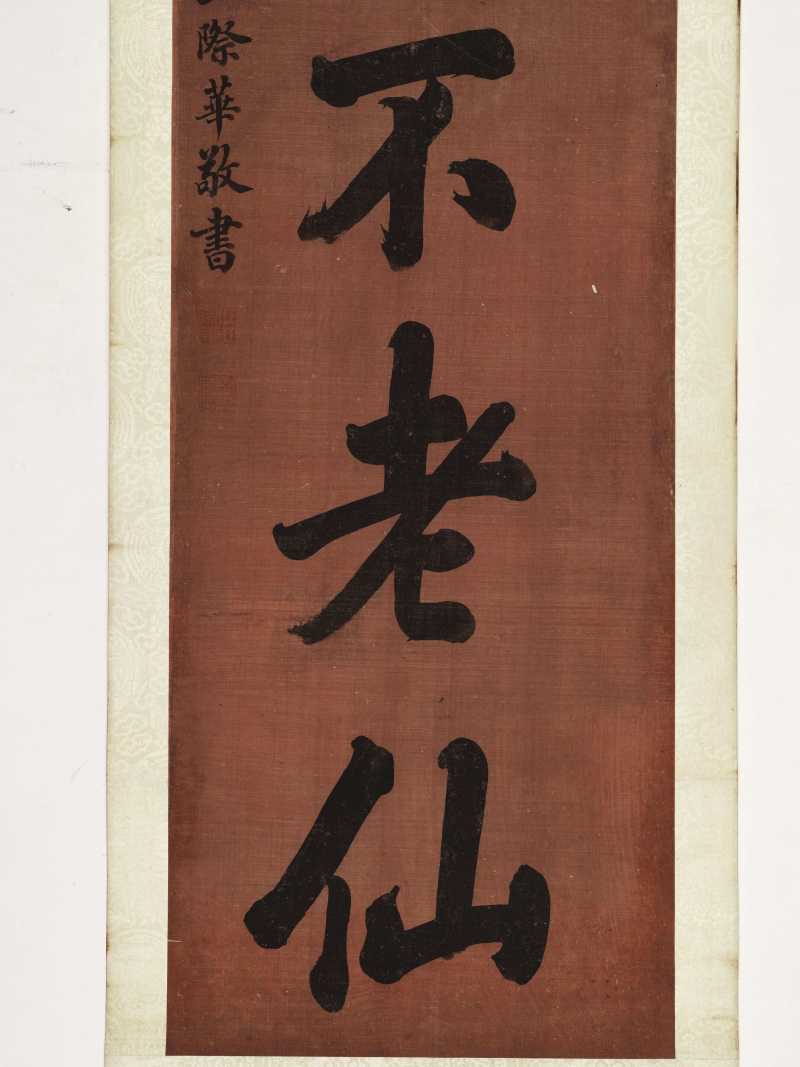 不老仙
際華敬書